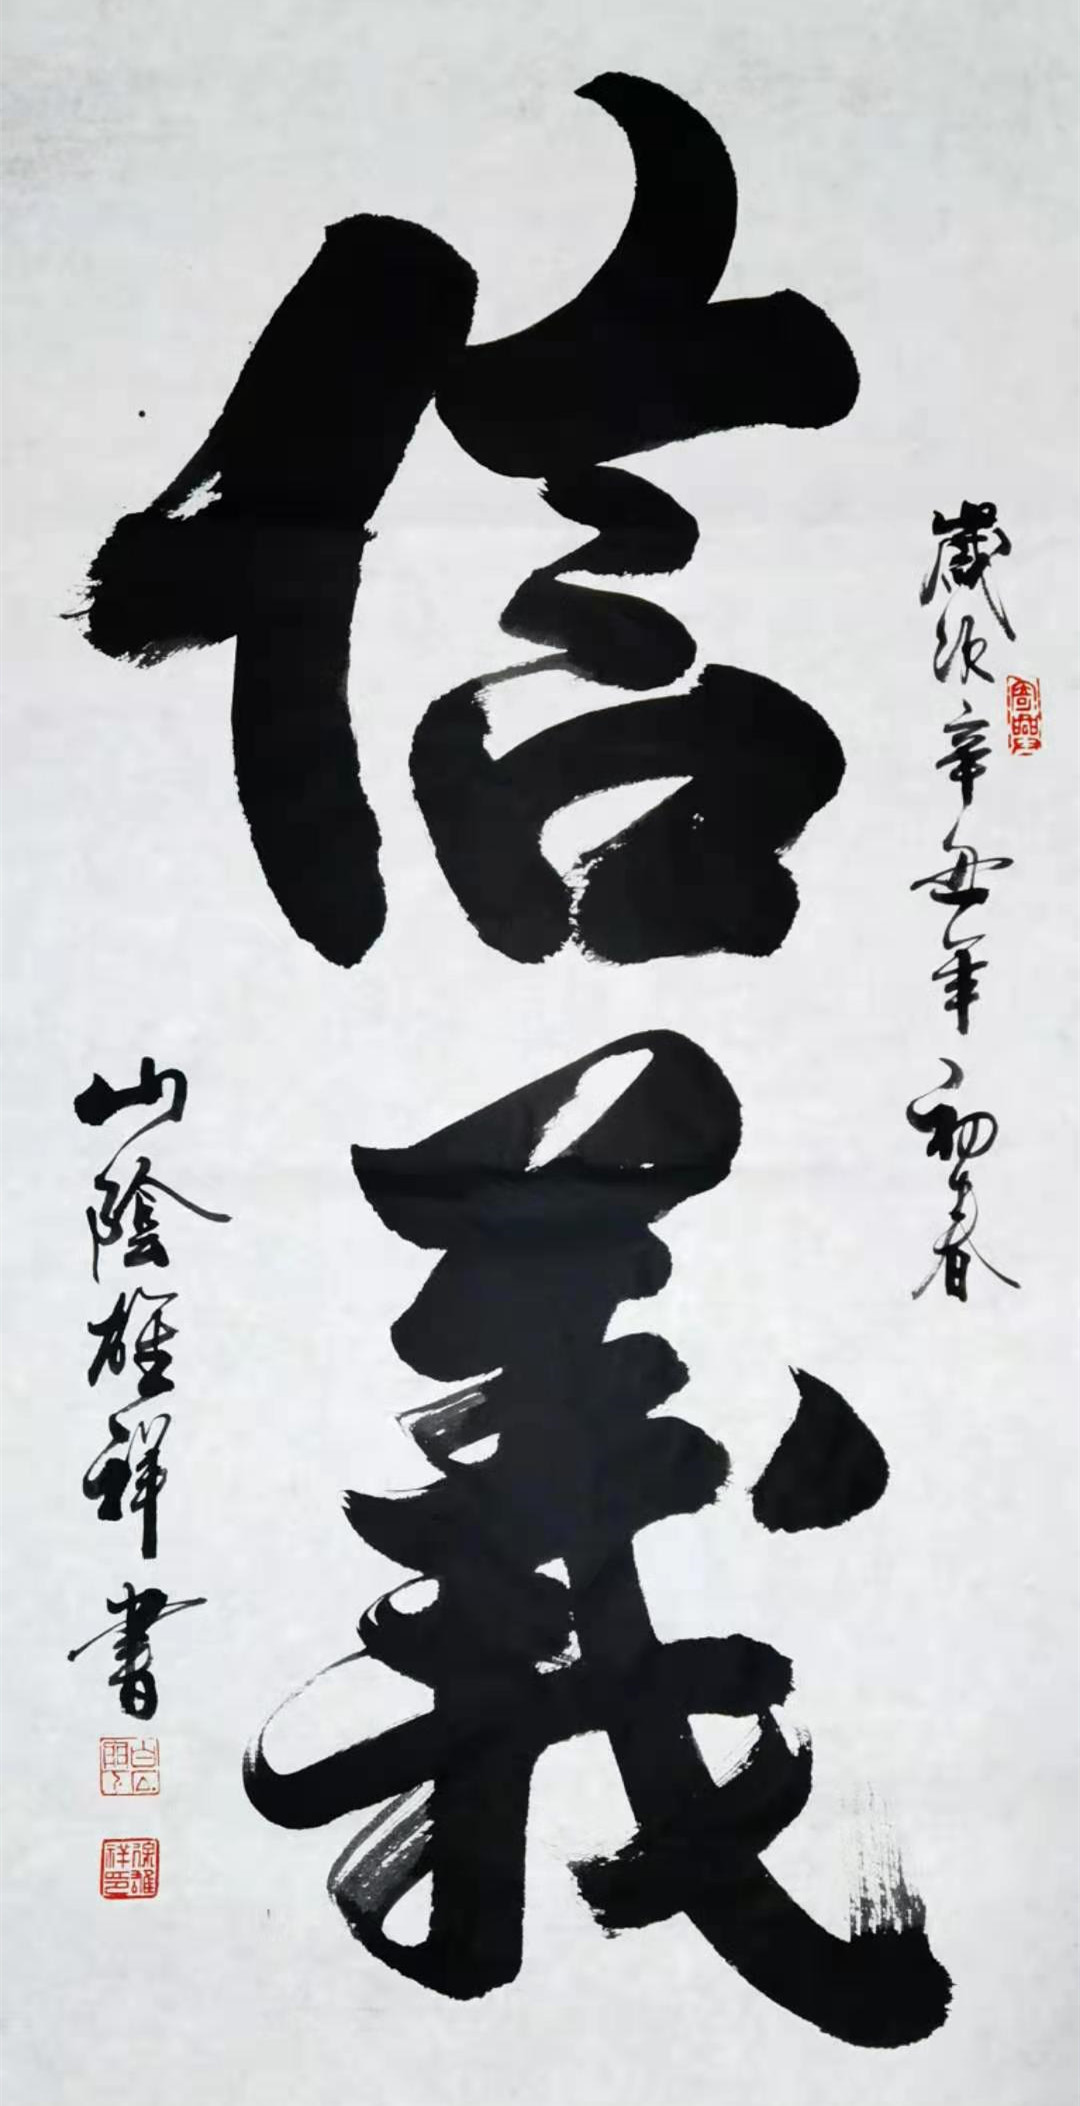 歲次辛丑年初春
信義
山陰雄祥書